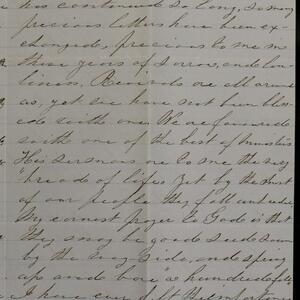 has continued so long, so many
precious letters have been ex-
changed, precious to me in
these years of sorrow, and lone
liness, Revivals are all around
us, yet we have not been bless-
ed with one. We are favoured
with one of the best of ministers
His sermons are to me the very
"bread of life" yet by the most
of our people they fall unheeded
My earnest prayer to God is that
they may be good seed sown
by the way side, and spring
up and bear "an hundredfold,"
I have